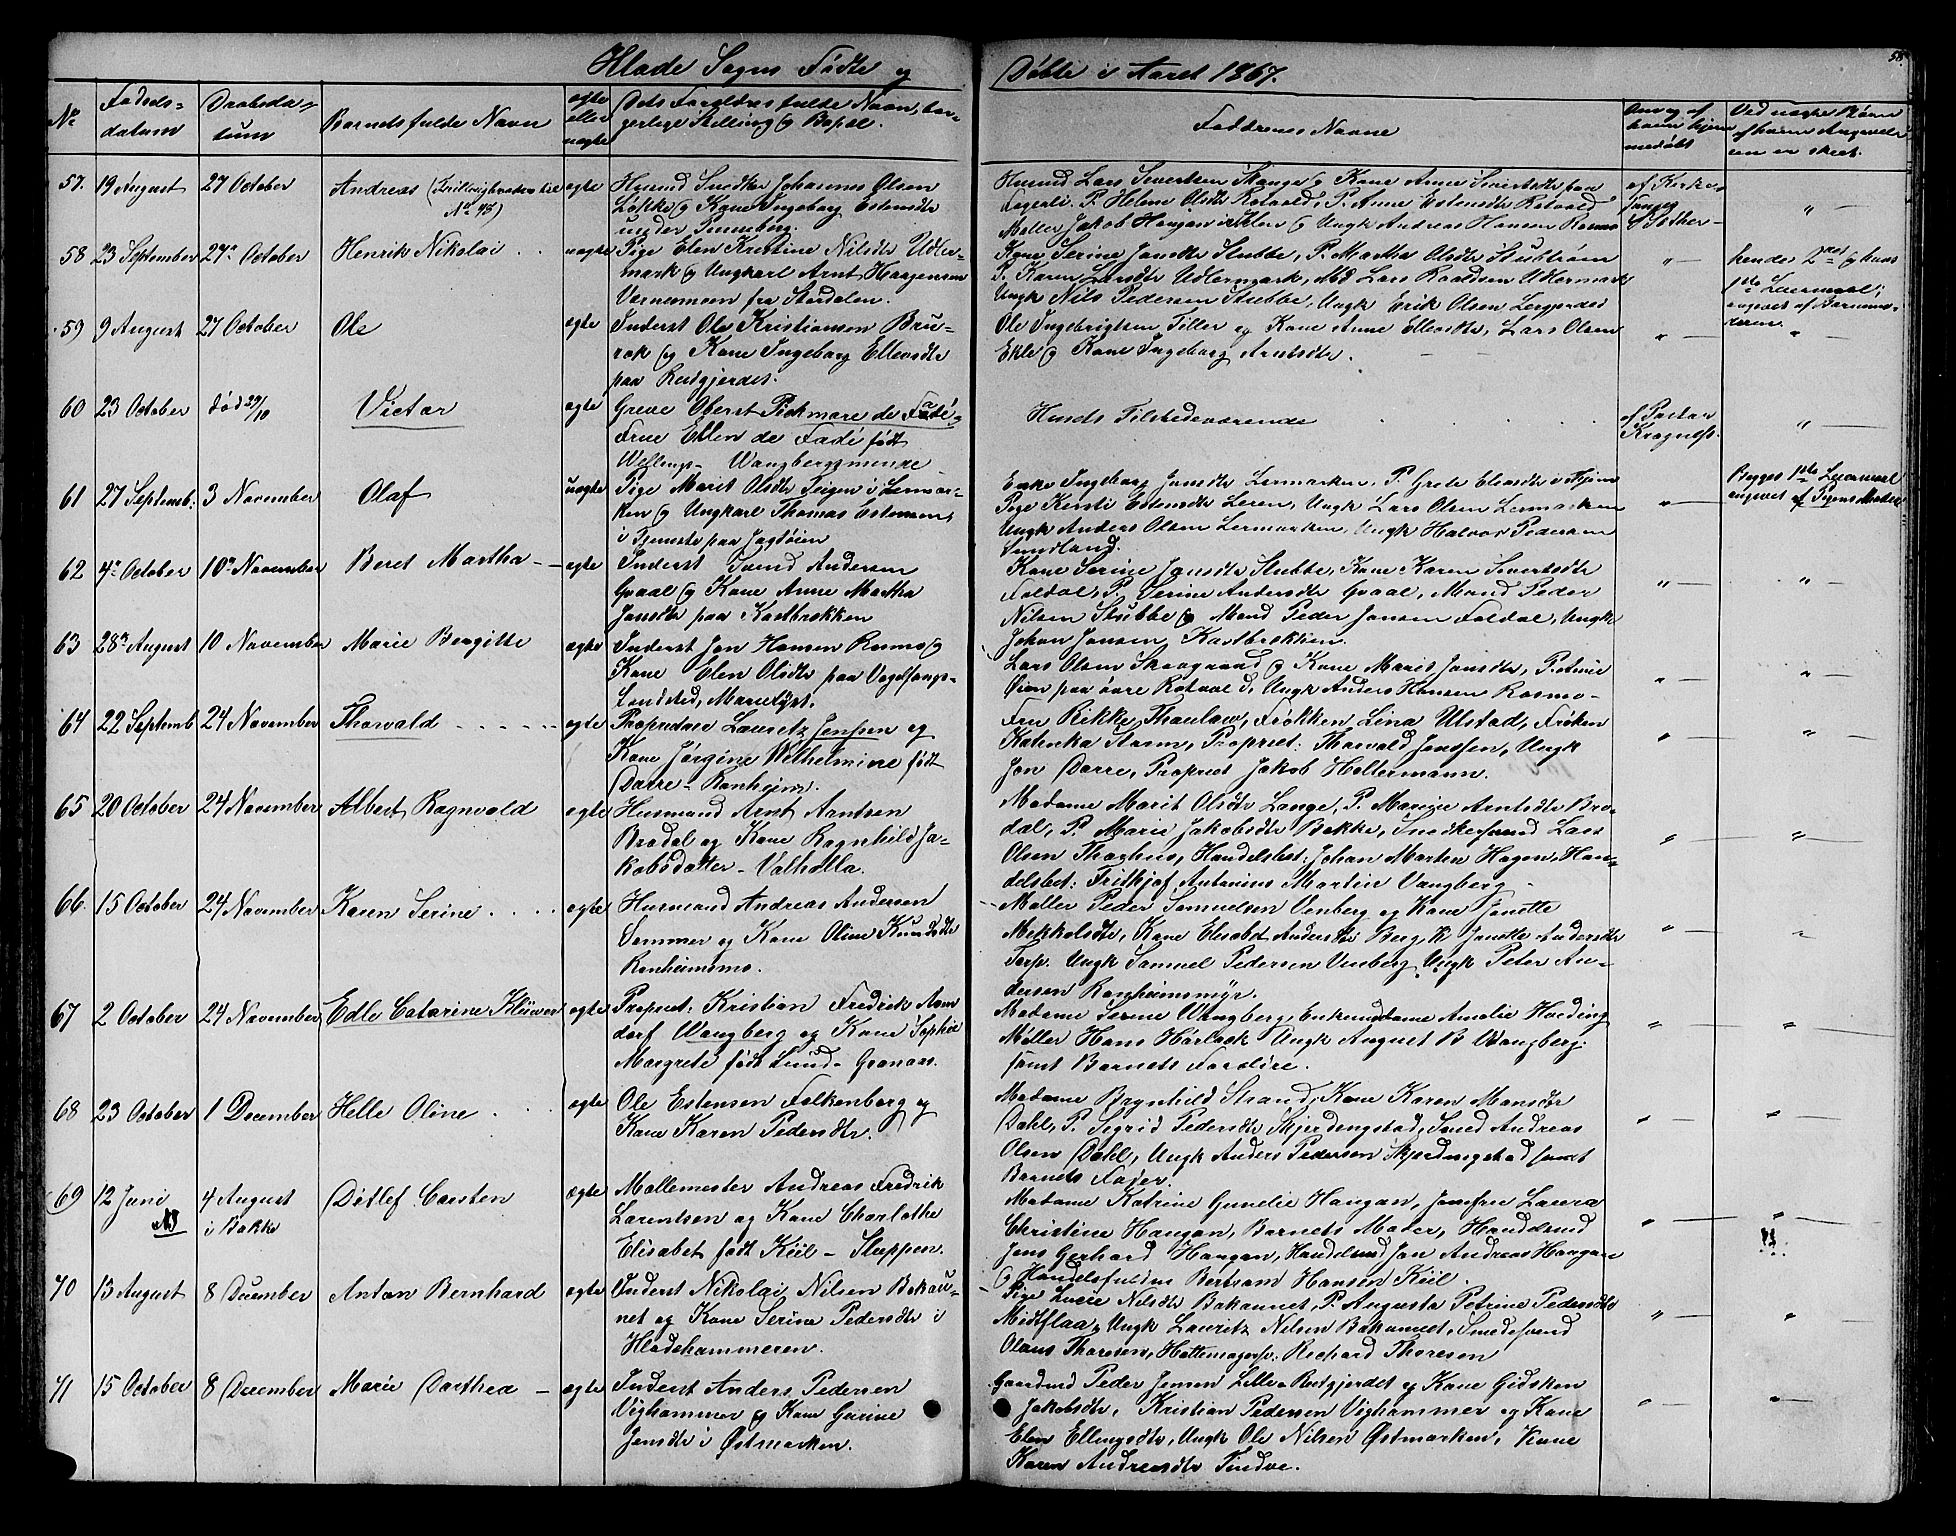 58.
Hlade Sogns Fødte og Døbte i Aaret 1867.
No
Fødsels-
datum
Daabsda-
tum
Barnets fulde Navn
ægte
eller
uægte
Dets Forældres fulde Navn, bor-
gerlige Stilling og Bopæl.
Faddrenes Navne
Om og af
hvem hjem-
medøbt
Ved uægte Børn
af hvem Angivels-
en er skeet.
57. 19 August 27 October Andreas (Tvillingbroder til ægte Husmd Snedker Johannes Olsen
No 45)
Løkke og Kone Ingeborg Estensdtr
under Tunneberg.
Husmd Lars Sivertsen Stange og Kone Anne Sivertsdtr paa
P. Helene Olsdtr Rotvold, P. Anne Estensdtr Rotvold
Møller Jakob Haugan og Ungk Andreas Hansen Rosmo
af Kirke-
sanger
Sother
" —
58 23 September 27de October Henrik Nikolai . . uægte Pige Elen Kristine Nilsdtr Udler-
mark og Ungkarl Arnt Haagensen
Værnesmoen fra Størdalen.
Kone Serine Jansdtr Stubbe, P. Martha Olsdtr Stubtrøen
P. Karen Larsdtr Udlermark, Md Lars Roaldsen Udlermark
Ungk Nils Pedersen Stubbe, Ungk Erik Olsen
" —
hendes 2det og hans
1ste Leiermaal;
angivet af Jordmo-
deren.
59 9 August 27 October Ole ægte Inderst Ole Kristiansen Bru-
rok og Kone Ingeborg Ellevsdtr
paa Rydgjerdet.
Ole Ingebrigtsen Tiller og Kone Anne Ellevsdtr, Lars Olsen
Ekle og Kone Ingeborg Arntsdtr.
" —
" —
60 23 October død 29/10 Victor ægte Greve Oberst Pichmare de Fadé -
Frue Ellen de Fadé født
Wellings - Wangbergsminde
Husets Tilstedeværende
af Pastor
Krognes.
" —
61 27 Septemb: 3 November Olaf uægte Pige Marit Olsdtr Teigen i Leinmar-
ken og Ungkarl Thomas Estensen,
i Tjeneste paa Jagtøien
Enke Ingeborg Jansdtr Lermarken, P. Grete
Pige Kirsti Estensdtr Leren, Ungk Lars Olsen Lermarken
Ungk Anders Olsen Lermarken, Ungk Halvor Pedersen
Sundland.
" —
Begges 1ste Leiermaal
angivet af Pigens Moder
62 4de October 10de November Beret Martha - - ægte Inderst Svend Andersen
Graal og Kone Anne Martha
Jansdtr paa Kastbrekken
Kone Serine Jansdtr Stubbe, Kone Karen Sivertsdtr
Foldal, P. Serine Andersdtr Graal, Mand Peder
Nilsen Stubbe og Mand Peder Jansen Foldal, Ungk
Johan Jansen Kastbrekken.
" —
" —
63 28de August 10 November Marie Bergitte ægte Inderst Jon Hansen Rosmo og
Kone Elen Olsdtr paa Vogelsangs-
Landsted, Marielyst.
Lars Olsen Skovgaard og Kone Marit Jansdtr, P.
Øien paa øvre Rotvold, Ungk Anders Hansen Rosmo -
" —
" —
64 22 Septemb 24 November Thorvald - - - - - ægte Proprietær Lauritz Jenssen og
Kone Jørgine Wilhelmine født
Darre - Ranheim.
Fru Rikke Thaulow, Frøkken Lina Ulstad, Frøken
Katinka Strøm, Propriet: Thorvald Jenssen, Ungk
Jon Darre, Propriet Jakob Holtermann.
" —
" —
65 20 October 24 November Albert Ragnvald ægte Husmand Arnt Arntsen
Brodal og Kone Ragnhild Ja-
kobsdatter - Valhalla.
Madame Marit Olsdtr Lange, P. Marie Arntsdtr Bro-
dal, P. Marie Jakobsdtr Bakke, Snedkersvend Lars
Olsen Thoghus, Handelsbet: Johan Martin Hagen, Han-
delsbet: Frithjof Antonius Martin Vangberg -
" —
" —
66 15 October 24 November Karen Serine . . . . ægte Husmand Andreas Andersen
Sommer og Kone Oline Knudsdtr
Ranheimsmo.
Møller Peder Samuelsen Venberg og Kone Janette
Mikkolsdtr, Kone Elisabet Andersdtr Berg, K Janette Andersdtr
Torp. Ungk Samuel Pedersen Venberg, Ungk Peter An-
dersen Ranheimsmyr.
" —
"
67 2 October 24 November Edle Catarine Klüwer ægte Propriet: Kristian Fredrik Arn
dorf Wangberg og Kone Sophie
Margrete født Lund - Granaas.
Madame Serene Wangberg, Enkemadame Amalie Hveding
Møller Hans Hårlock Ungk August B Wangberg.
samt Barnets Forældre.
" —
" —
68 23 October 1 December Helle Oline . . . ægte Ole Estensen Falkenborg og
Kone Karen Pedersdtr.
Madame Brynhild Strand, Kone Karen Monsdtr
Dahl, P. Sigrid Pedersdtr Skjerdengstad, Smed Andreas
Olsen Dahl, Ungk Anders Pedersen Skjerdingstad samt
Barnets Fader.
" —
" —
69 12 Juni 4 August Detlef Carsten ægte Møllemester Andreas Fredrik
NB i Bakke
Lorentsen og Kone Charlotte
Elisabet født Kiil - Sluppen.
Madame Katrine Gunelie Haugan, Jomfru Laura
Christine Haugan, Barnets Moder, Handelsmd
Jens Gerhard Haugan, Handelsmd Jon Andreas Haugan
og Handelsfuldm Bertram Hansen Kiil.
" —
" —
70 13 August 8 December Anton Bernhard ægte Inderst Nikolai Nilsen Bakau-
net og Kone Serine Pedersdtr i
Hladehammeren.
Pige Lucie Nilsdtr Bakaunet, P. Augusta Petrine Pedersdtr
Midtflaa, Ungk Lauritz Nilsen Bakaunet, Smedesvend
Olaus Thoresen, Hattemagersv: Richard Thoresen
" —
" —
71 15 October 8 December Marie Dorthea - ægte Inderst Anders Pedersen
Vighammer og Kone Gurine
Jensdtr i Østmarken.
Gaardmd Peder Jensen Lille-Rydgjerdet og Kone Gidsken
Jakobsdtr, Kristian Pedersen Vighammer og Kone
Elen Ellingsdtr, Ungk Ole Nilsen Østmarken, Kone
Karen Andreasdtr Tindve.
" —
" —